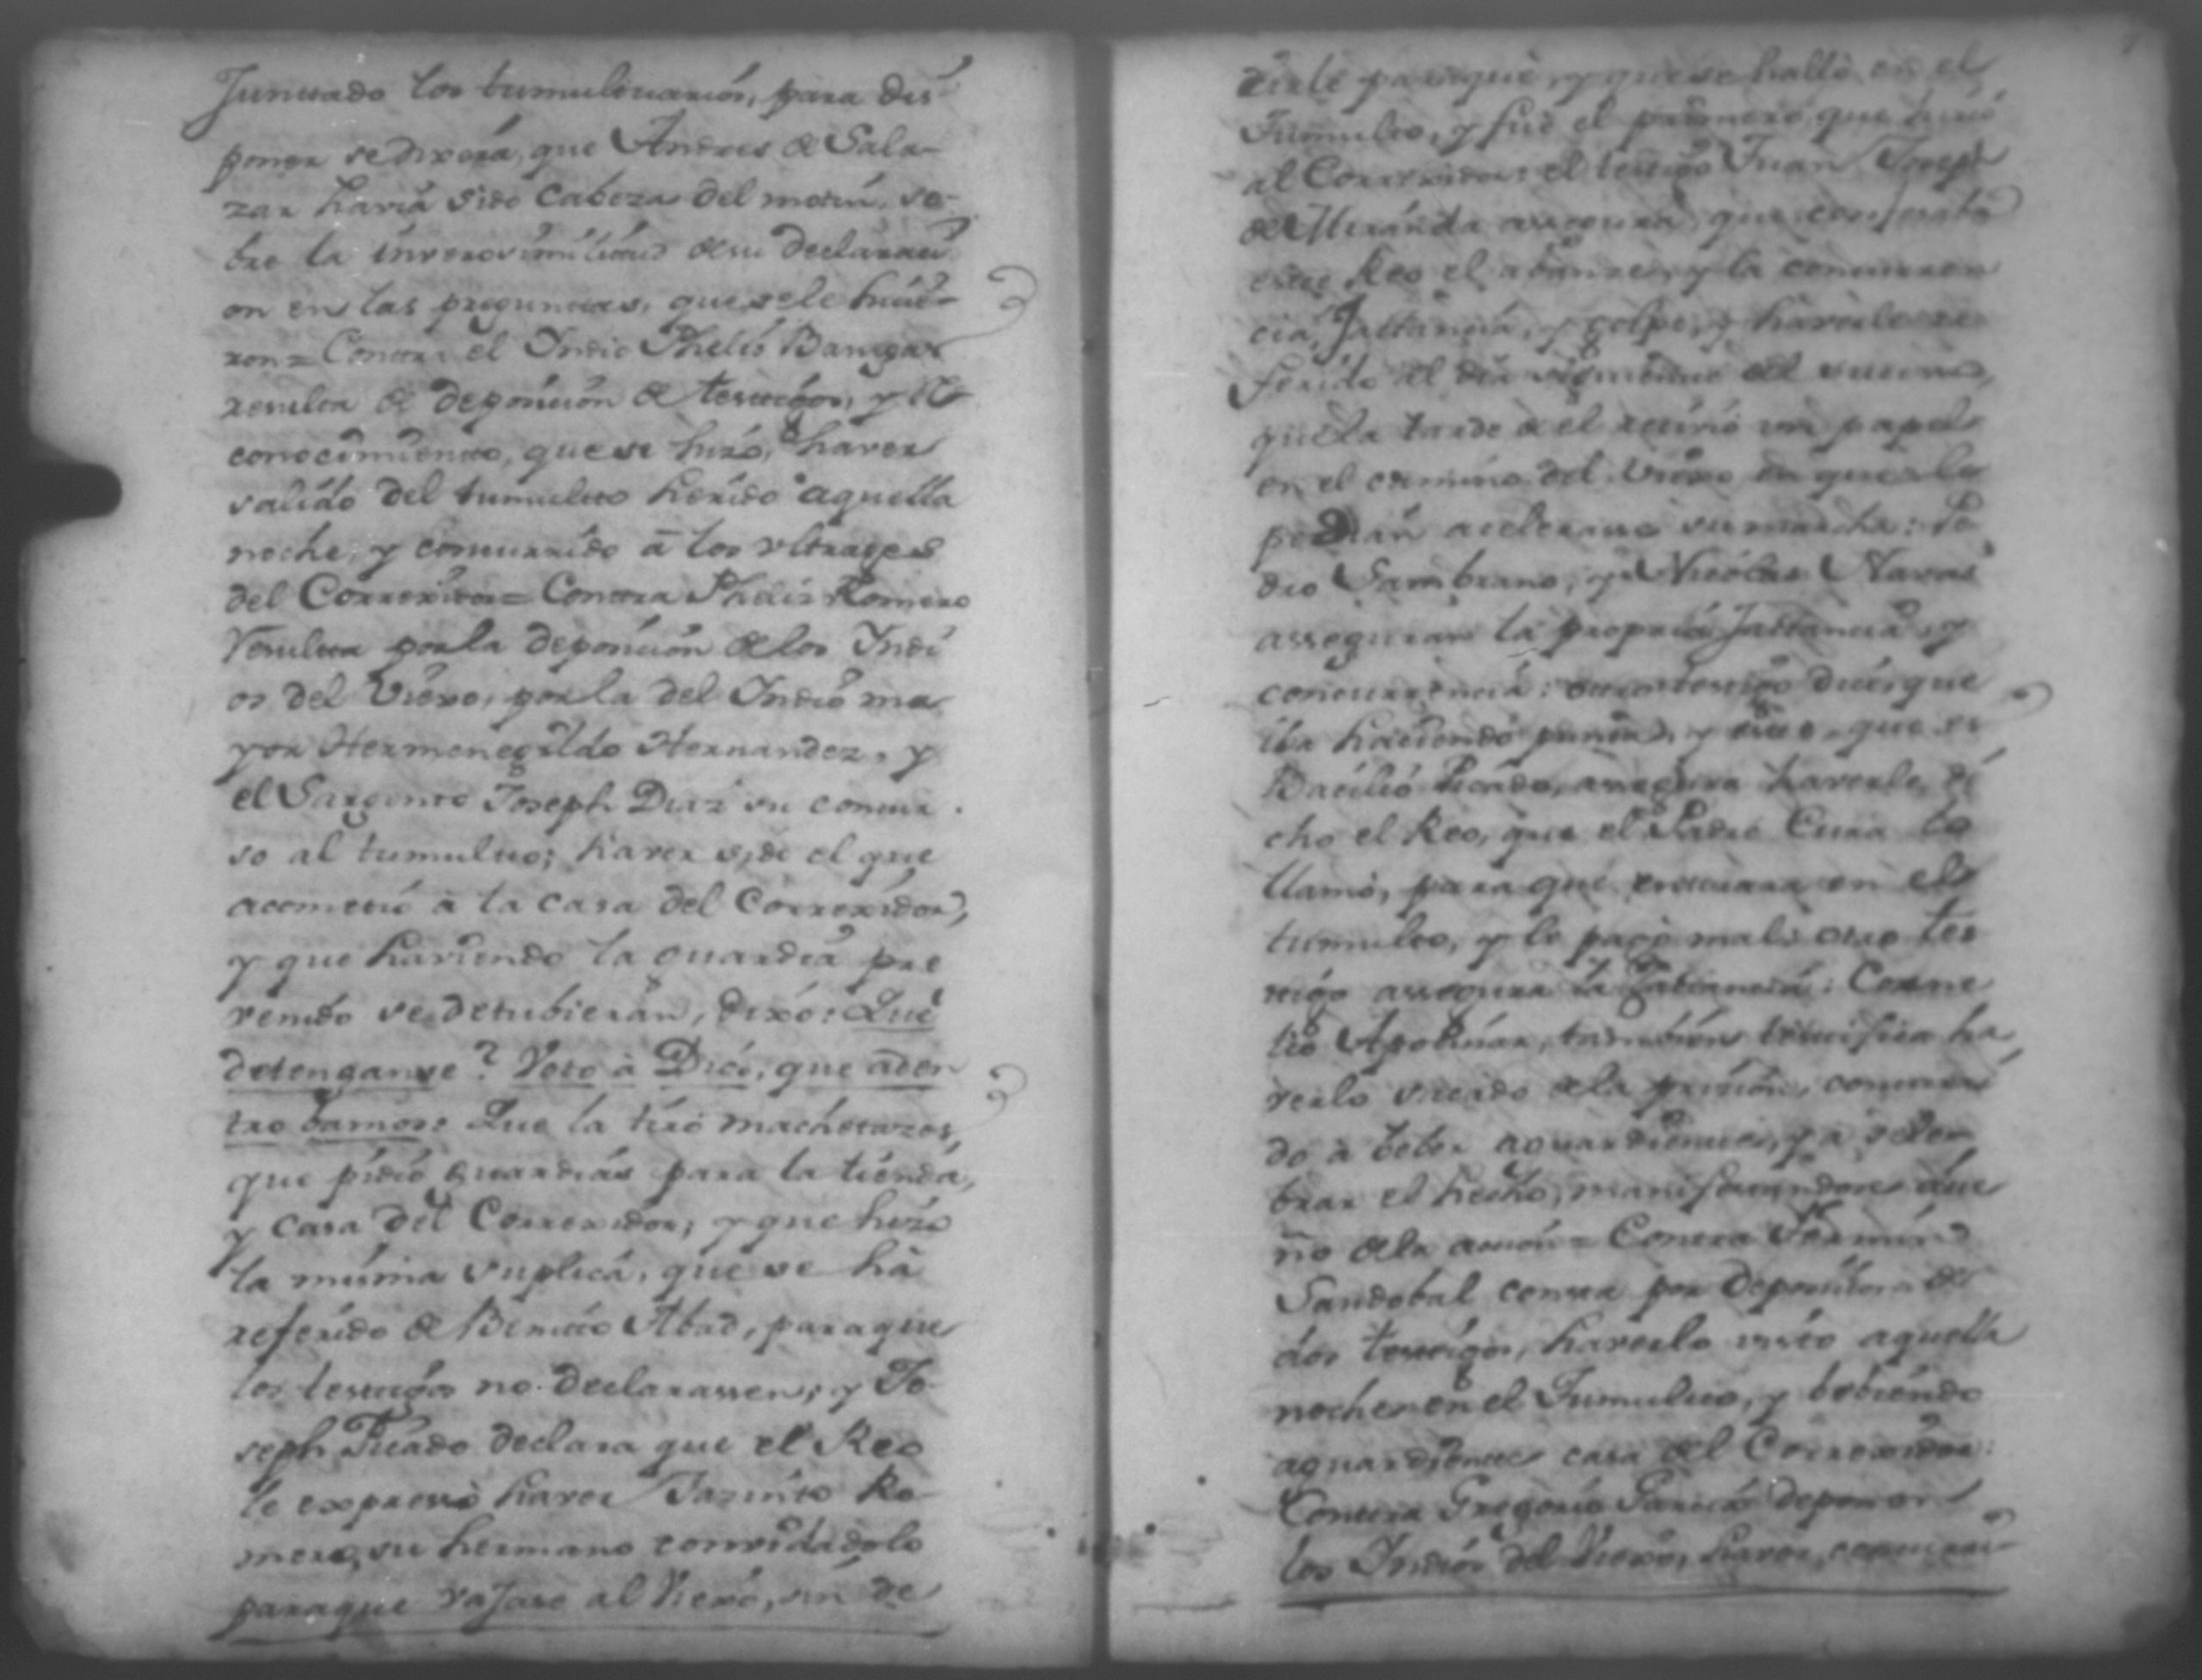 Juntado los tumultuarios, para dis
poner se dixera, que Andres de Sala-
zar havia sido Cabeza del motin, so-
bre la inverosimilitud de su declaraci
on en las preguntas, que se le hicie-
ron = Contra el Indio Phelis Banegas
resulta de deposicion de testigos, y re
conocimiento, que se hizo, haver
salido del tumulto herido aquella
noche, y concurrido à los ultrages
del Correxidor = Contra Romero
Resulta por la deposicion de los Indi
os del Viexo, por la del Indio ma
yor Hermenegildo Hernandez, y
el Sargento Joseph Diaz su concur
so al tumulto; haver sido el que
acometió à la casa del Correxidor,
y que haviendo la guardia pre
venido se detubieran, dixo: Que
detenganse? Voto à Dios, que aden
tro bamos: Que la tiró machetazos,
que pidió guardias para la tienda,
y casa del Correxidor; y que hizo
la misma suplica, que se hà
referido de Benito Abad, para que
los testigos no declarassen; y Jo-
seph Picado declara que el Reo
le expresò haver Jazinto Ro-
mero, su hermano convidadolo
para que vajase al Viexo, sin de
zirle para què, y que se hallò en el
Tumulto, y fuè el primero que hirió
al Correxidor: el testigo Juan Joseph
de Miranda assegura, que
este Reo el abanze, y la concurren
cia, Jactancia, y golpe, y haverle re
ferido al dia siguiente del
que la tarde de el reciviò un papel
en el camino del Viexo en que le
pedian acelerase su marcha: Pe
dro Sambrano, y Nicolas Navas
asseguran la propria Jactancia, y
concurrencia: otro testigo dice, que
iba haciendo punta, y que
Basilio Picado, assegura haverle di
cho el Reo, que el Padre Cura lo
llamò, para que entrara en el
tumulto, y le pagò mal: otro tes
tigo assegura la Jactancia:
Apolinar, tambien testifica ha
verlo sacado de la prision,
do à beber aguardiente, y à celem
brar el hecho, manifestandose due
ño de la accion = Contra
Sandobal consta por deposicion de
dos testigos, haverlo visto aquella
noche en el Tumulto, y bebiendo
aguardiente casa del Correxidor:
Contra Gregorio Garcia deponen
los Indios del Viexo, haver concurri